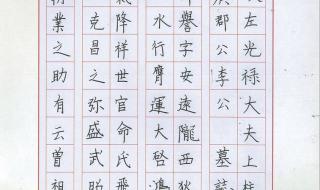 左光禄大夫上柱
郡公李公墓誌
譽字安遠隴西狄
水行膺運大啓鴻
降祥世官命氏飛
克昌之弥盛武助
業之助有云曾祖